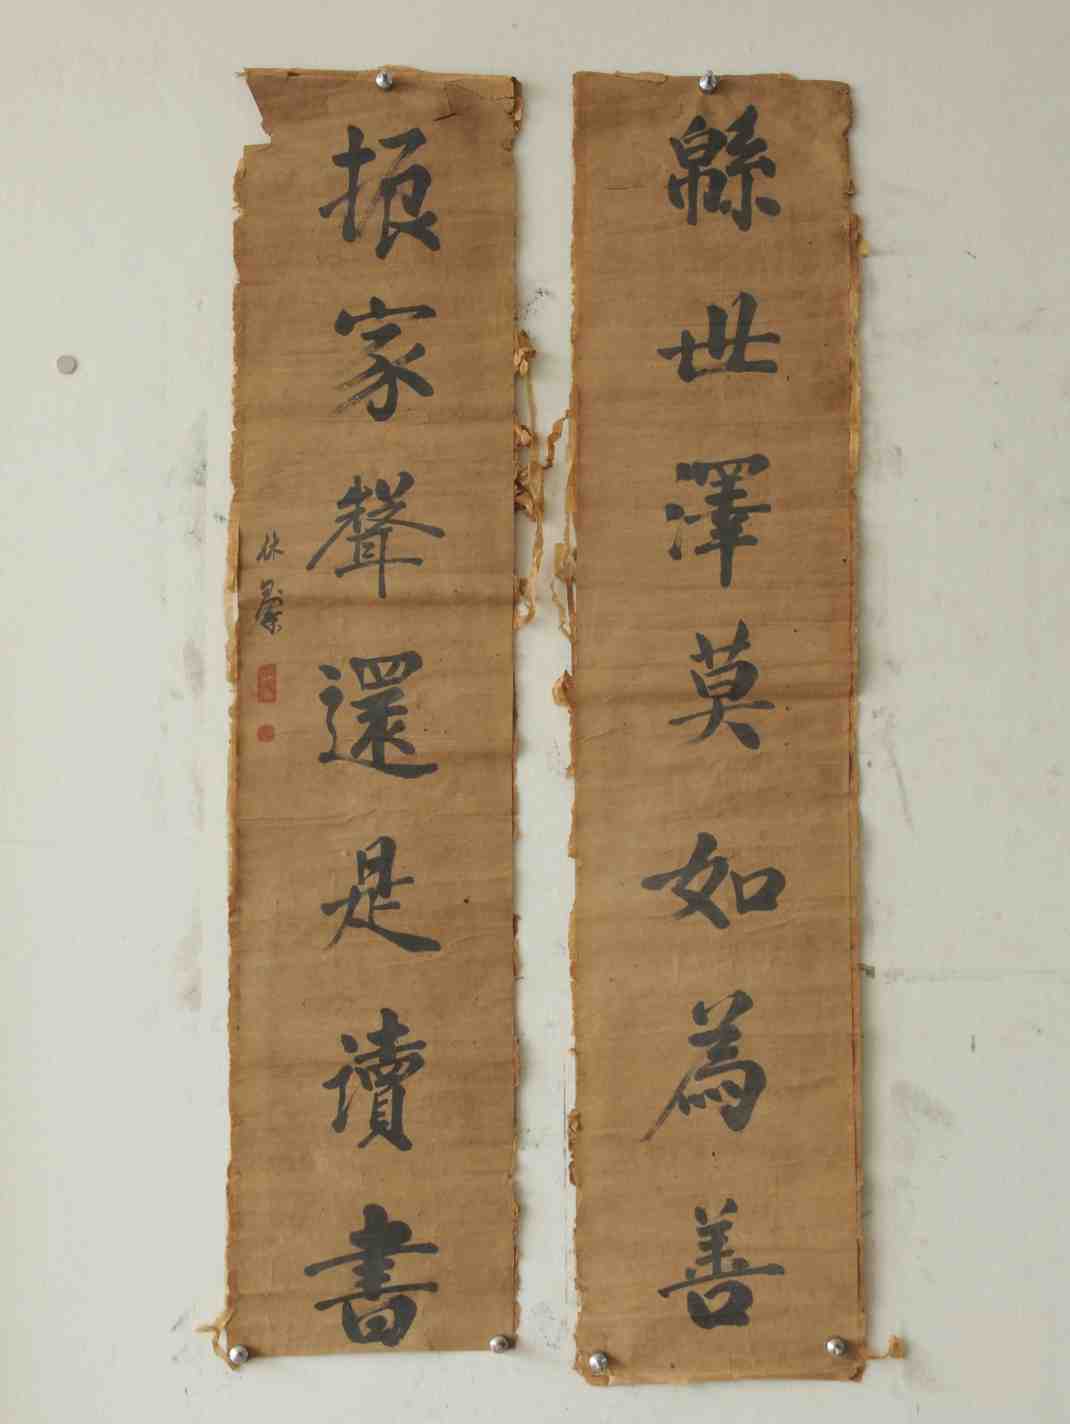 緜世澤莫如為善
振家聲還是讀書